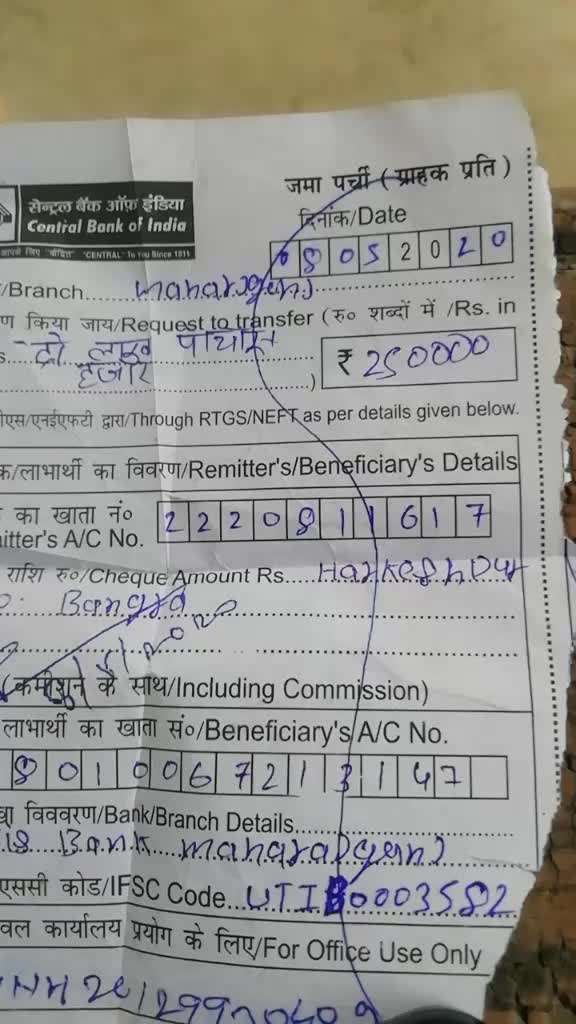 जमा पर्ची (ग्राहक प्रति)
सेन्ट्रल बैंक ऑफ़ इंडिया
Central Bank of India
"CENTRAL" To You Since 1911
दिनांक/Date
08052020
/Branch......
ण किया जाय/Request to transfer (रु० शब्दों में /Rs. in
दो लाख पाचास
हजार
) ₹ 250000
ीएस/एनईएफटी द्वारा/Through RTGS/NEFT as per details given below.
क/लाभार्थी का विवरण/Remitter's/Beneficiary's Details
का खाता नं०
itter's A/C No.
2220811617
राशि रु०/Cheque Amount Rs.....
Bangra
(कमीशन के साथ/Including Commission)
लाभार्थी का खाता सं०/Beneficiary's A/C No.
8010067213147
विववरण/Bank/Branch Details......
Bank
एससी कोड/IFSC Code...UTIB0003582
वल कार्यालय प्रयोग के लिए/For Office Use Only